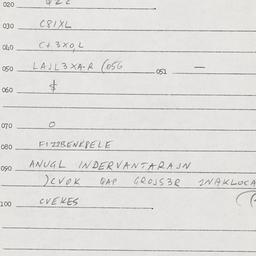 020
030 C81XL
040 C+3XO,L
050 LAJL3XA-R (056 051 —
060 $
070 O
080 FIZZBENKPELE
090 ANUGL INDERVANTARAJN
)CVPK GAP GROJS3R INAKLOCA
100 CVEKES